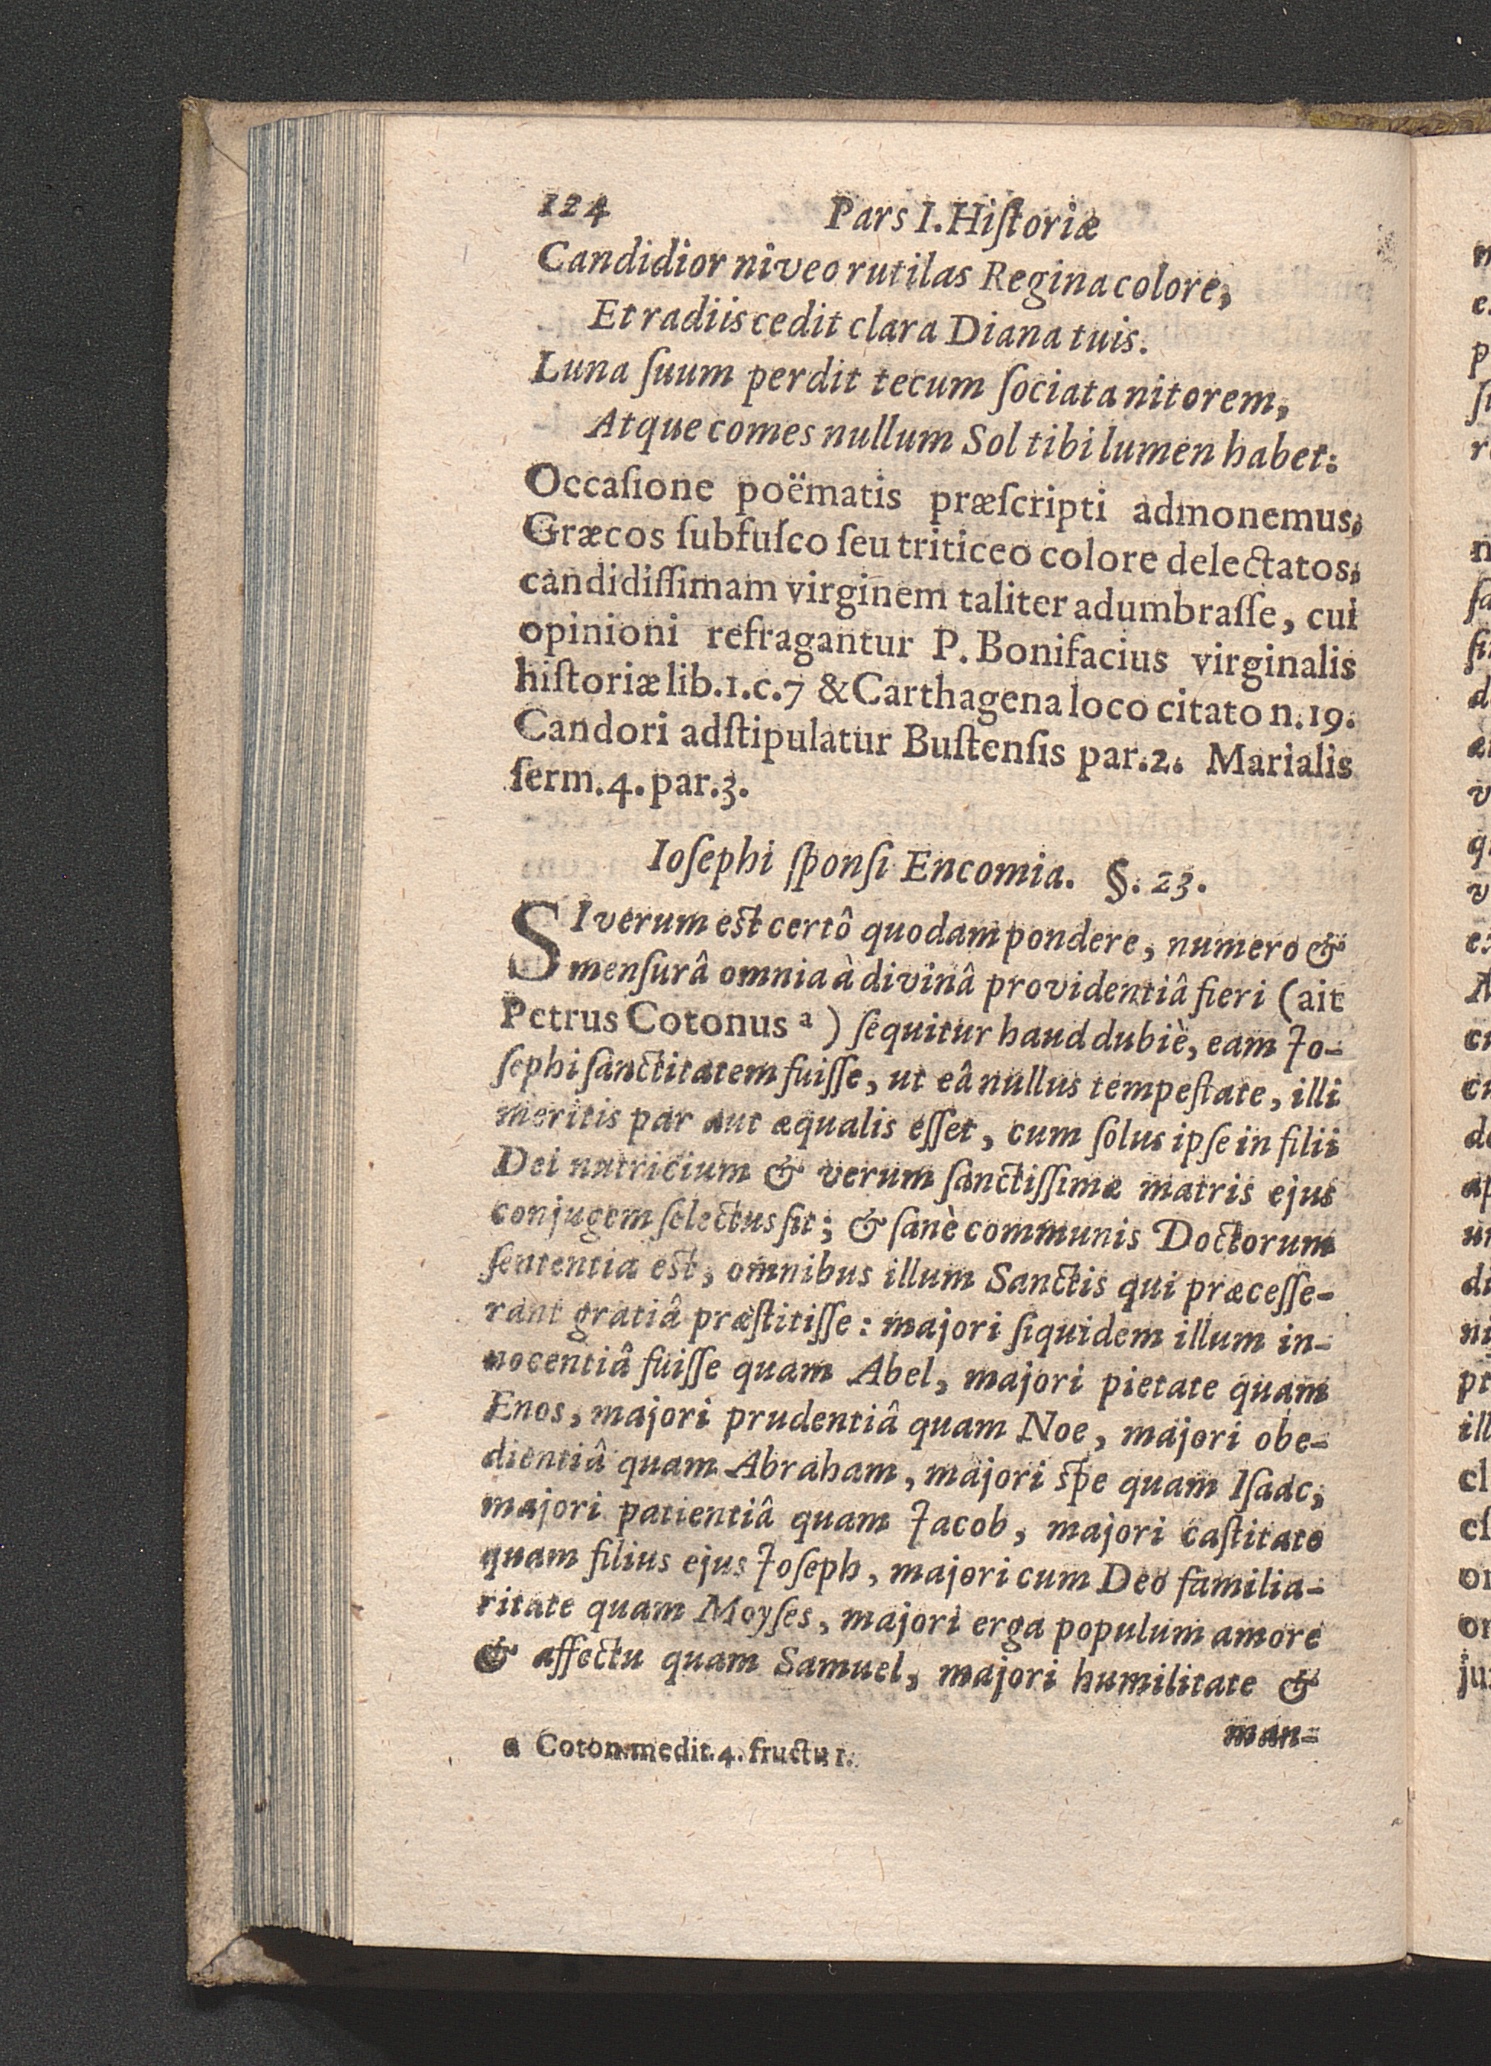 124 Pars I. Hiſtoriæ
Candidior niveo rutilas Regina colore,
Et radiis cedit clara Diana tuis.
Luna ſuum perdit tecum ſociata nitorem,
Atque comes nullum Sol tibi lumen habet:
Occaſione poëmatis præſcripti admonemus,
Græcos ſubfuſco ſeu triticeo colore delectatos,
candidiſſimam virginem taliter adumbraſſe, cui
opinioni refragantur P. Bonifacius virginalis
hiſtoriæ lib.1.c.7 & Carthagena loco citato n.19.
Candori adſtipulatur Buſtenſis par.2. Marialis
ſerm.4.par.3.
Ioſephi ſponſi Encomia. §. 23.
SI verum est certô quodam pondere, numero &
menſurâ omnia à divinâ providentiâ fieri (ait
Petrus Cotonus a) ſequitur haud dubiè, eam Jo-
ſephi ſanctitatem fuiſſe, ut eâ nullus tempeſtate, illi
meritis par aut æqualis eſſet, cum ſolus ipſe in filii
Dei nutricium & verum ſanctiſſimæ matris ejus
conjugem ſelectus ſit; & ſanè communis Doctorum
ſententia est, omnibus illum Sanctis qui præceſſe-
rant gratiâ præſtitiſſe: majori ſiquidem illum in-
nocentiâ fuiſſe quam Abel, majori pietate quam
Enos, majori prudentiâ quam Noe, majori obe-
dientiâ quam Abraham, majori ſpe quam Iſaac,
majori patientiâ quam Jacob, majori caſtitate
quam filius ejus Joſeph, majori cum Deo familia-
ritate quam Moyſes, majori erga populum amore
& affectu quam Samuel, majori humilitate &
man-
a Coton. medit. 4. fructu 1.